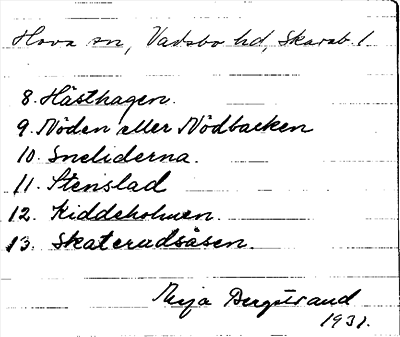 Hova sn, Vadsbo hd, Skarab. l
8. Hästhagen.
9. Nöden eller Nödbacken
10. Sneliderna.
11. Stenslad
12. Kiddeholmen.
13. Skaterudsåsen.
Bergstrand
1931.